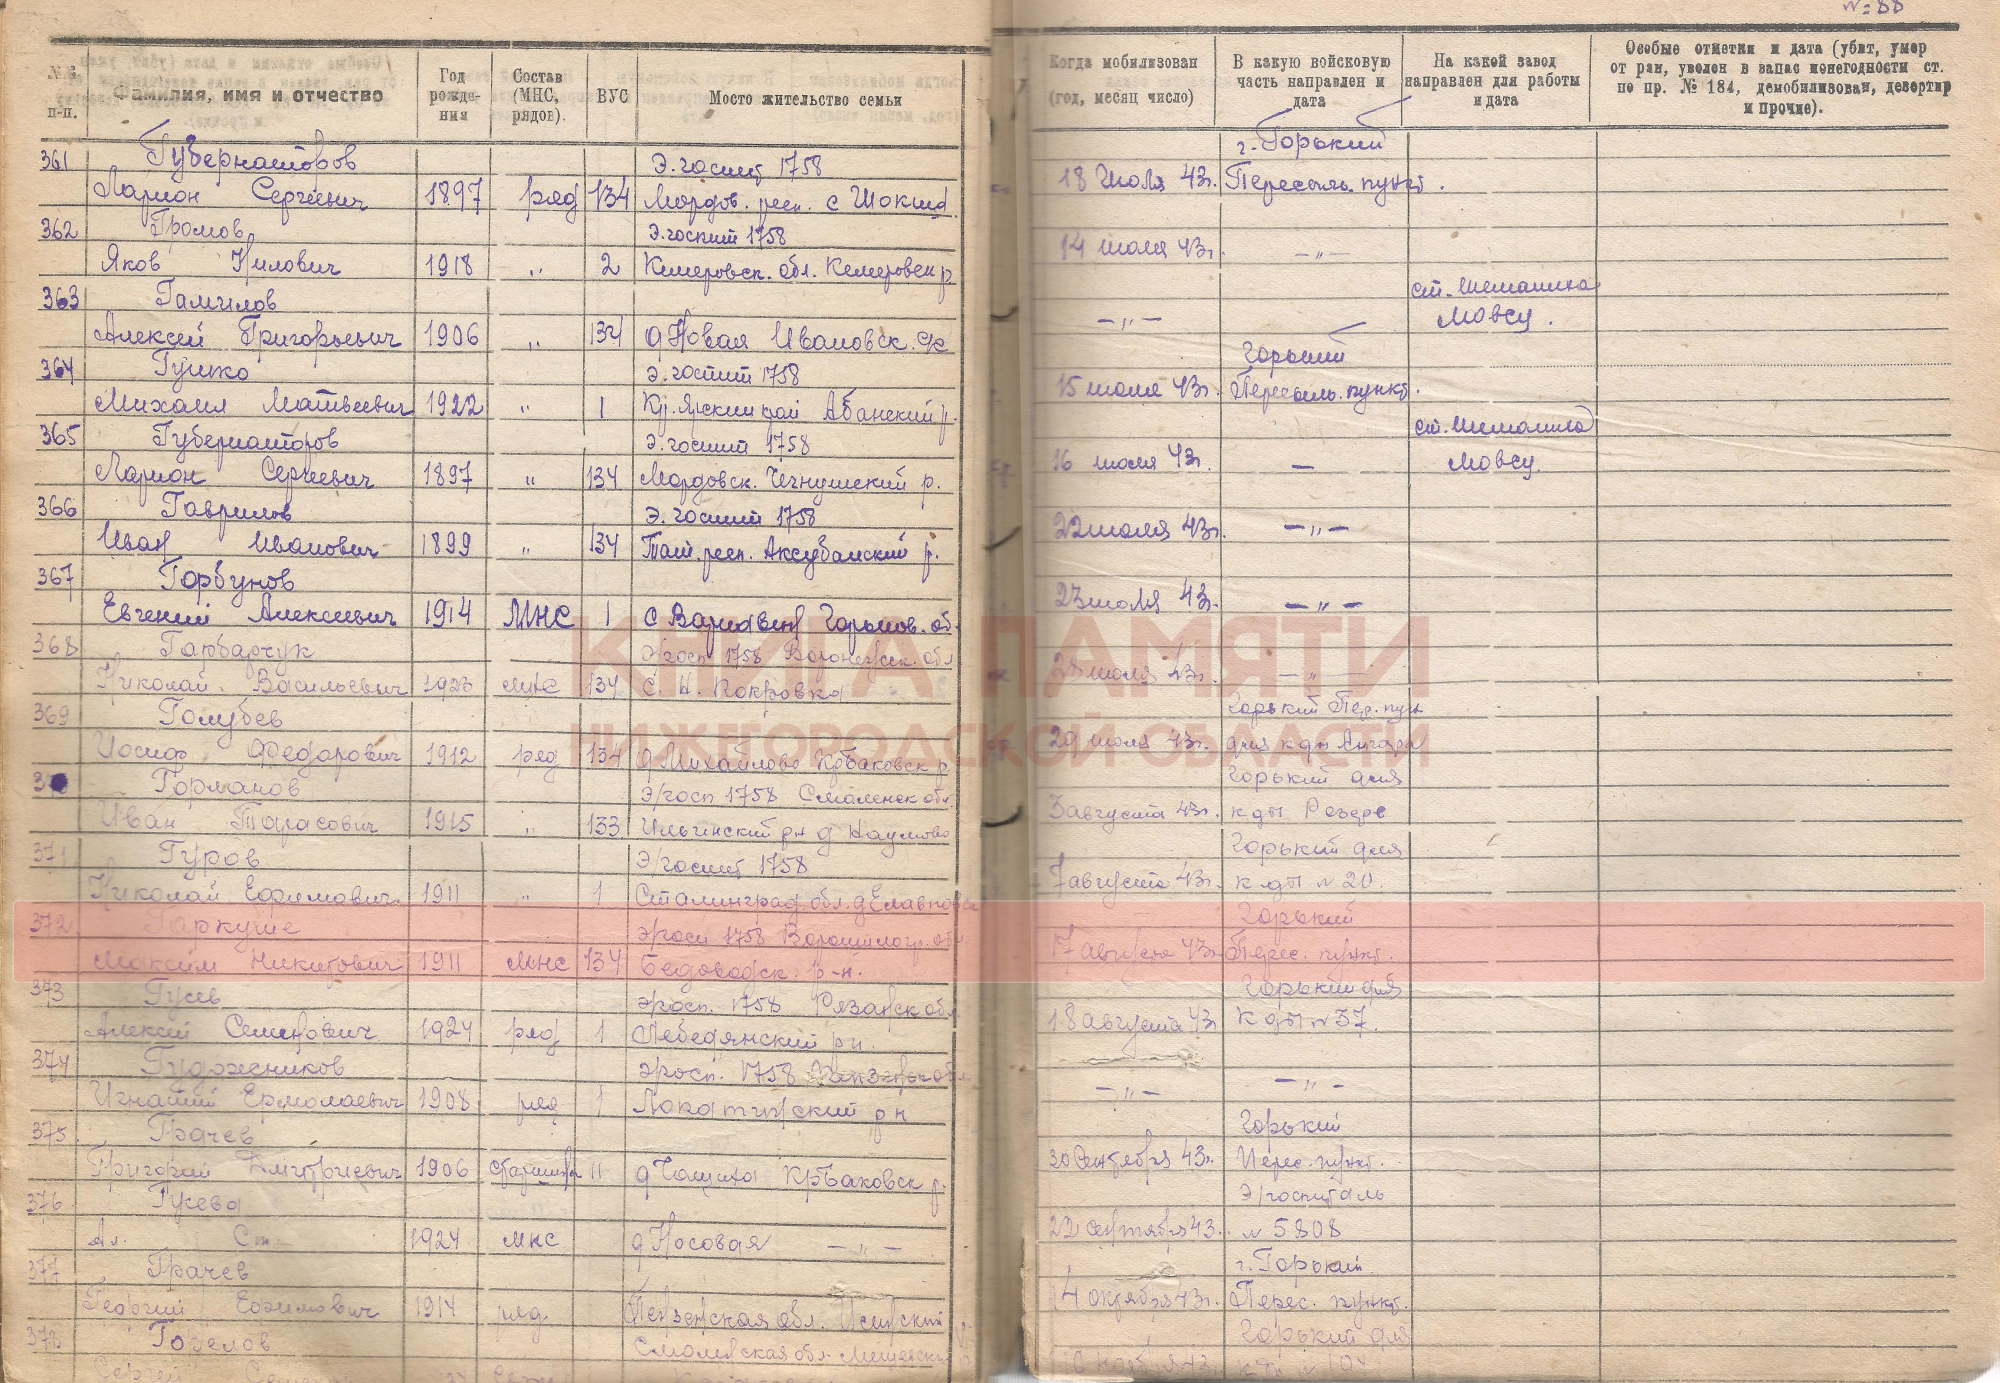 № 88
№№ п-п.
Фамилия, имя и отчество
Год рожде-ния
Состав (МНС, рядов).
ВУС
Мосто жительство семьи
Когда мобилизован (год, месяц число)
В какую войсковую часть направлен и дата
На какой завод направлен для работы и дата
Особые отметки и дата (убит, умер от ран, уволен в запас по негодности ст. по пр. № 184, демобилизован, дезертир и прочие).
361 Губернаторов Э. госпит 1758 г. Горький
Ларион Сергеевич 1897 ряд 134 Мордов. респ. с 18 Июля 43г. Пересыль. пункт.
362 Громов Э. госпит 1758
Яков Нилович 1918 " 2 Кемеровск. обл. Кемеровск р. 14 июля 43г. — " —
363 Гамилов ст. Шеманиха
Алексей Григорьевич 1906 " 134 д Новая Ивановск. с/с — " — Мовсу.
364 Гушко Э. госпит 1758 Горький
Михаил Матвеевич 1922 " 1 Кр. ярский край Абанский р. 15 июля 43г. Пересыль. пункт.
365 Губернаторов Э. госпит 1758 ст. Шеманиха
Ларион Сергеевич 1897 " 134 Мордовск. р. 16 июля 43г. — Мовсу.
366 Гаврилов Э. госпит 1758
Иван Иванович 1899 " 134 Тат. респ. Аксубаиский р. 22 июля 43г. — " —
367 Горбунов
Евгений Алексеевич 1914 МНС 1 с Варнавин Горьков. об. 23 июля 43г. — " —
368 Гарбарчук Э/госп 1758 Воронежск. обл
Николай Васильевич 1923 МНС 134 с. Н. Покровка 28 июля 43г. — " —
369 Голубев Горький Пер. пун
Иосиф Федорович 1912 ряд 134 д Михайлово Крбаковск р 29 июля 43г. для к-ды Ангара
Горманов Э/госп 1758 Смоленск обл. Горький для
Иван Тарасович 1915 " 133 Ильинский рн д Наумово 3 августа 43г. кды
371 Гуров Э/госпит 1758 Горький для
Николай Ефимович 1911 " 1 Сталинград. обл. 7 августа 43г. к-ды № 20.
372 Гаркуше Э/госп 1758 Ворошиловгр. об. Горький
Максим Никитович 1911 МНС 134 Бедоводск. р-н. 17 августа 43г. Перес. пункт.
373 Гусев Э/госп. 1758 Рязанск обл. Горький для
Алексей Семенович 1924 ряд 1 Лебедянский рн. 18 августа 43г кды № 37.
374 Гудожников Э/госп. 1758 Пензенск обл.
Игнатий Ермолаевич 1908 ряд 1 Лопатинский рн — " — — " —
375 Грачев Горький
Григорий Дмитриевич 1906 старшина 11 д Крбаковск р. 30 сентября 43г. Перес. пункт.
376 Гусева Э/госпиталь
Ал. Ст. 1924 МНС д Носовая — " — 22 сентября 43. № 5808
377 Грачев г. Горький
Георгий Ефимович 1914 ряд. Пензенская обл. 4 октября 43г. Перес. пункт.
378 Смоленская обл. Горький для
Сергей 10 ноября 43г.
КНИГА ПАМЯТИ
НИЖЕГОРОДСКОЙ ОБЛАСТИ